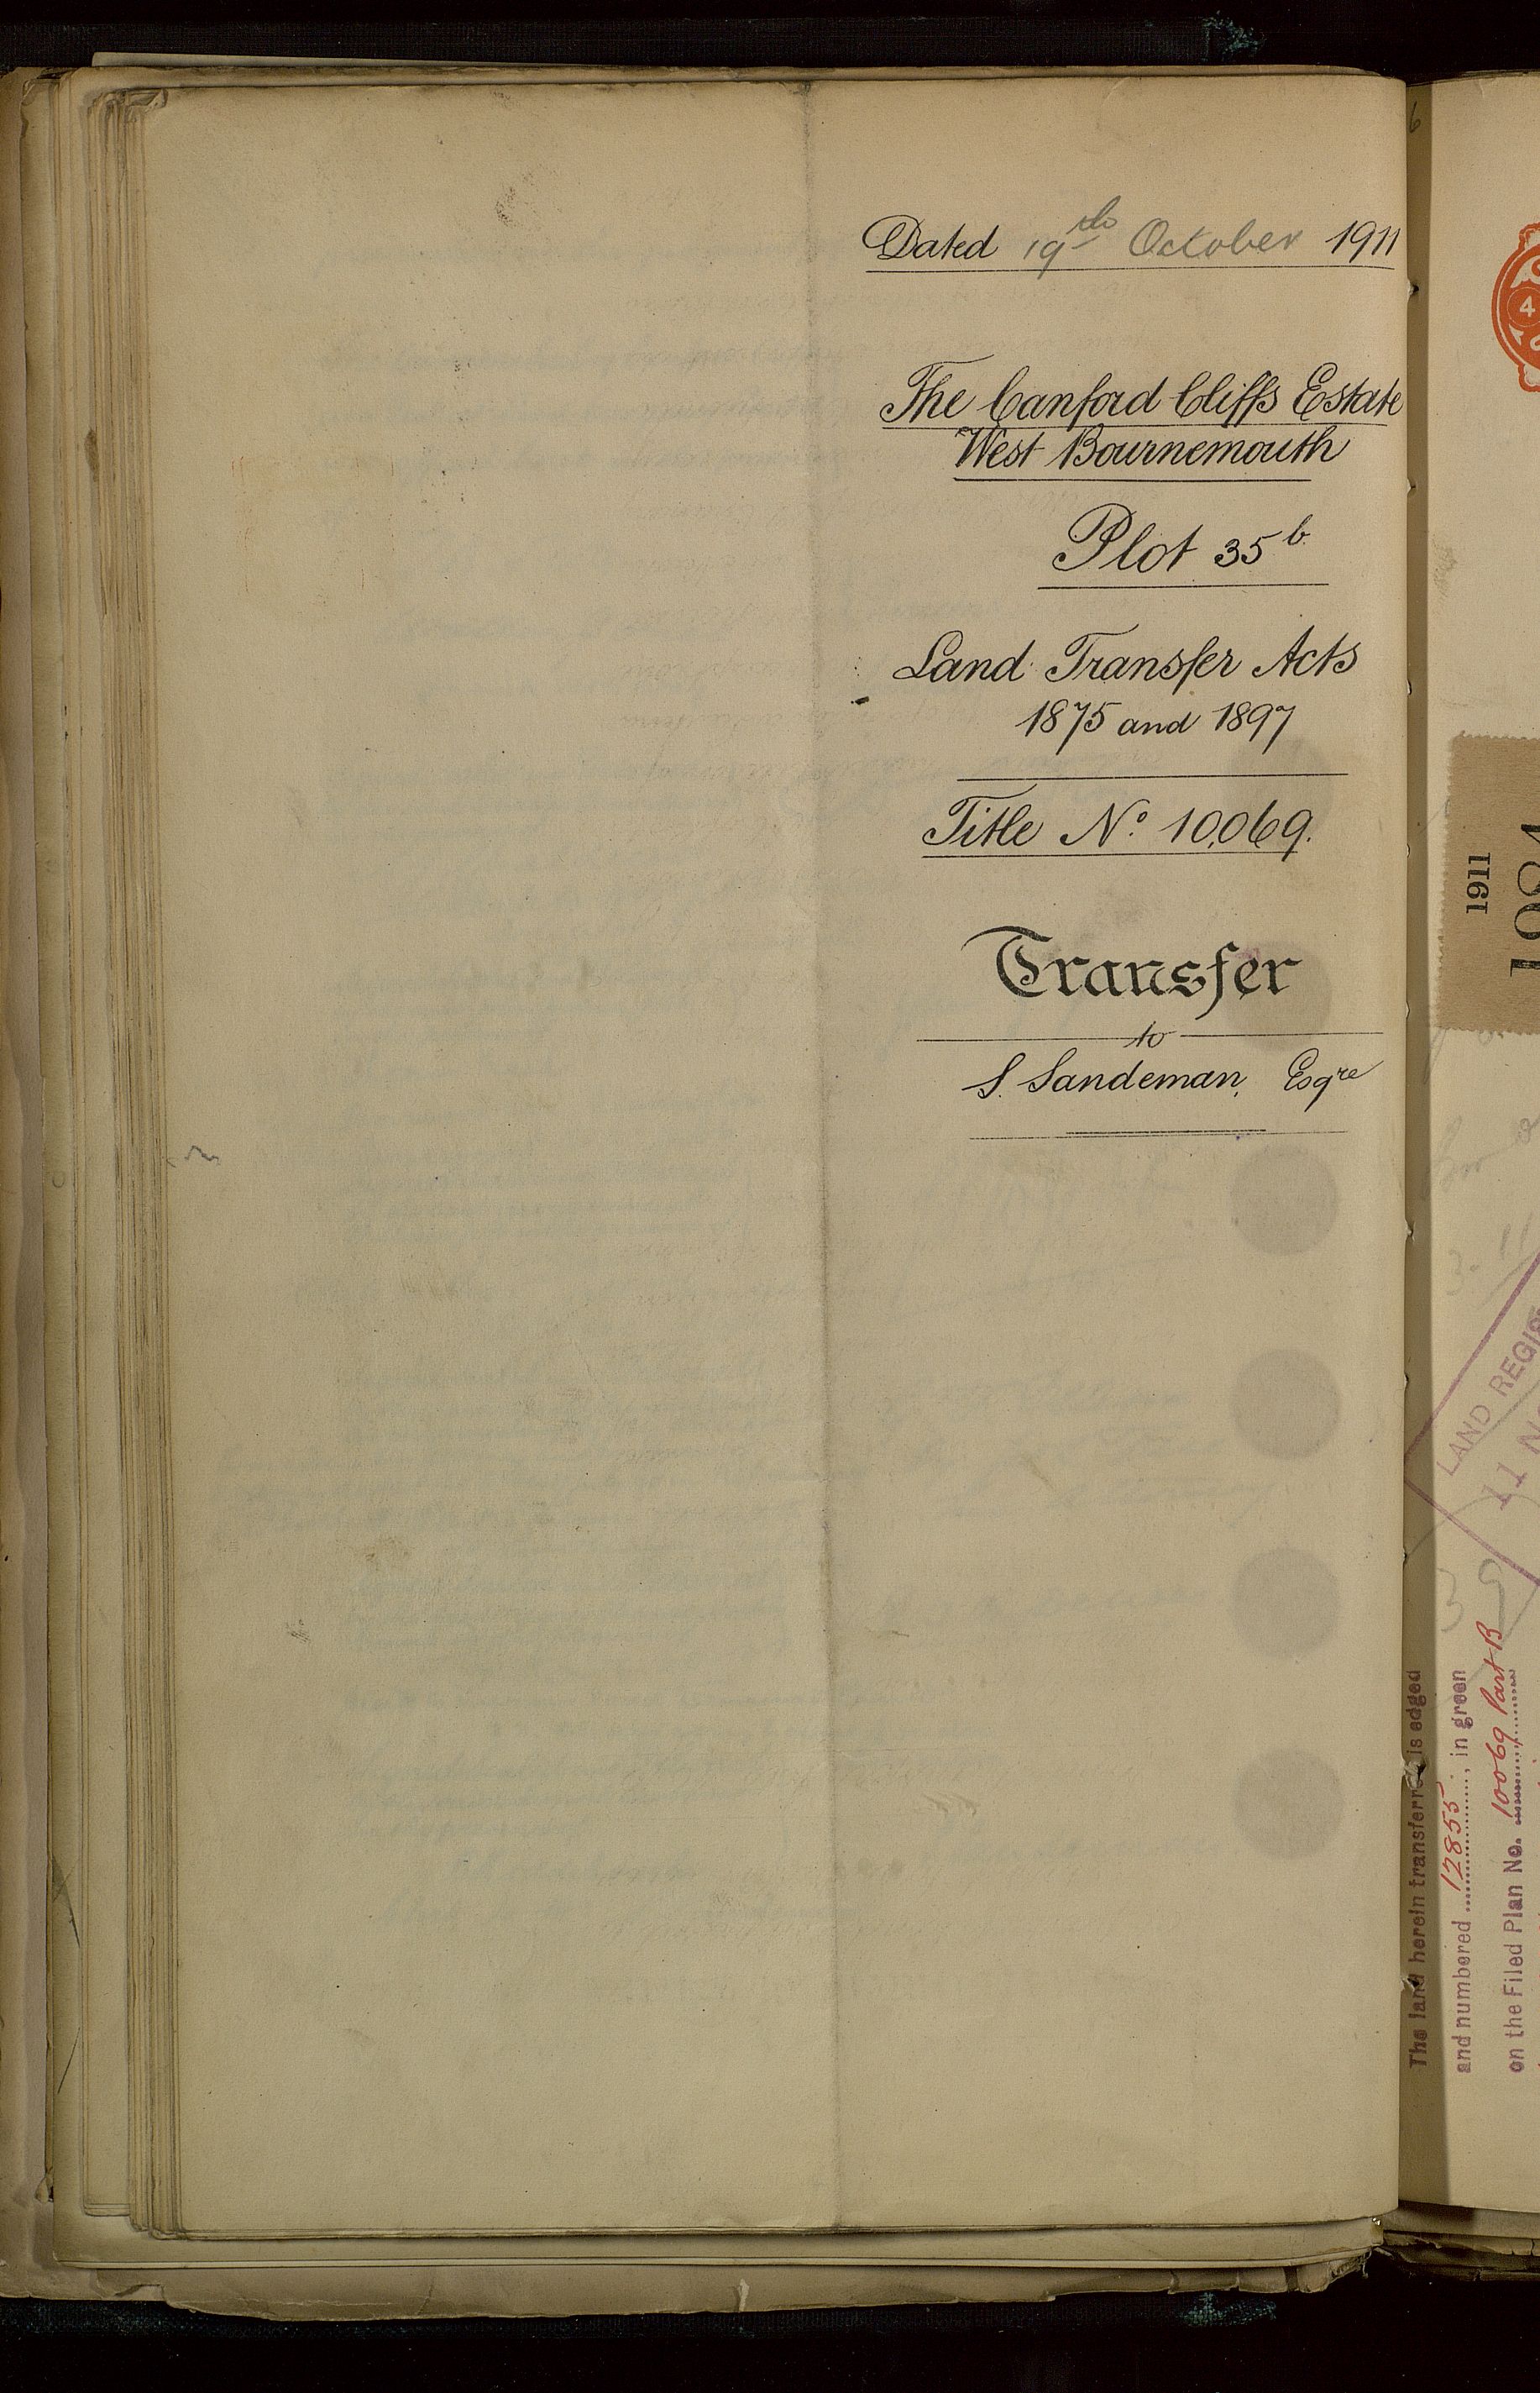 Dated 19th October 1911
The Canford Cliffs Estate
West Bournemouth
Plot 35b.
Land Transfer Acts
1875 and 1897
Title No. 10,069.
Transfer
to
S. Sandeman, Esqre
6
4
1911
LAND REGIS
11 N
The land herein transferred is edged
and numbered 12855, in green
on the Filed Plan No. 10069 Part B